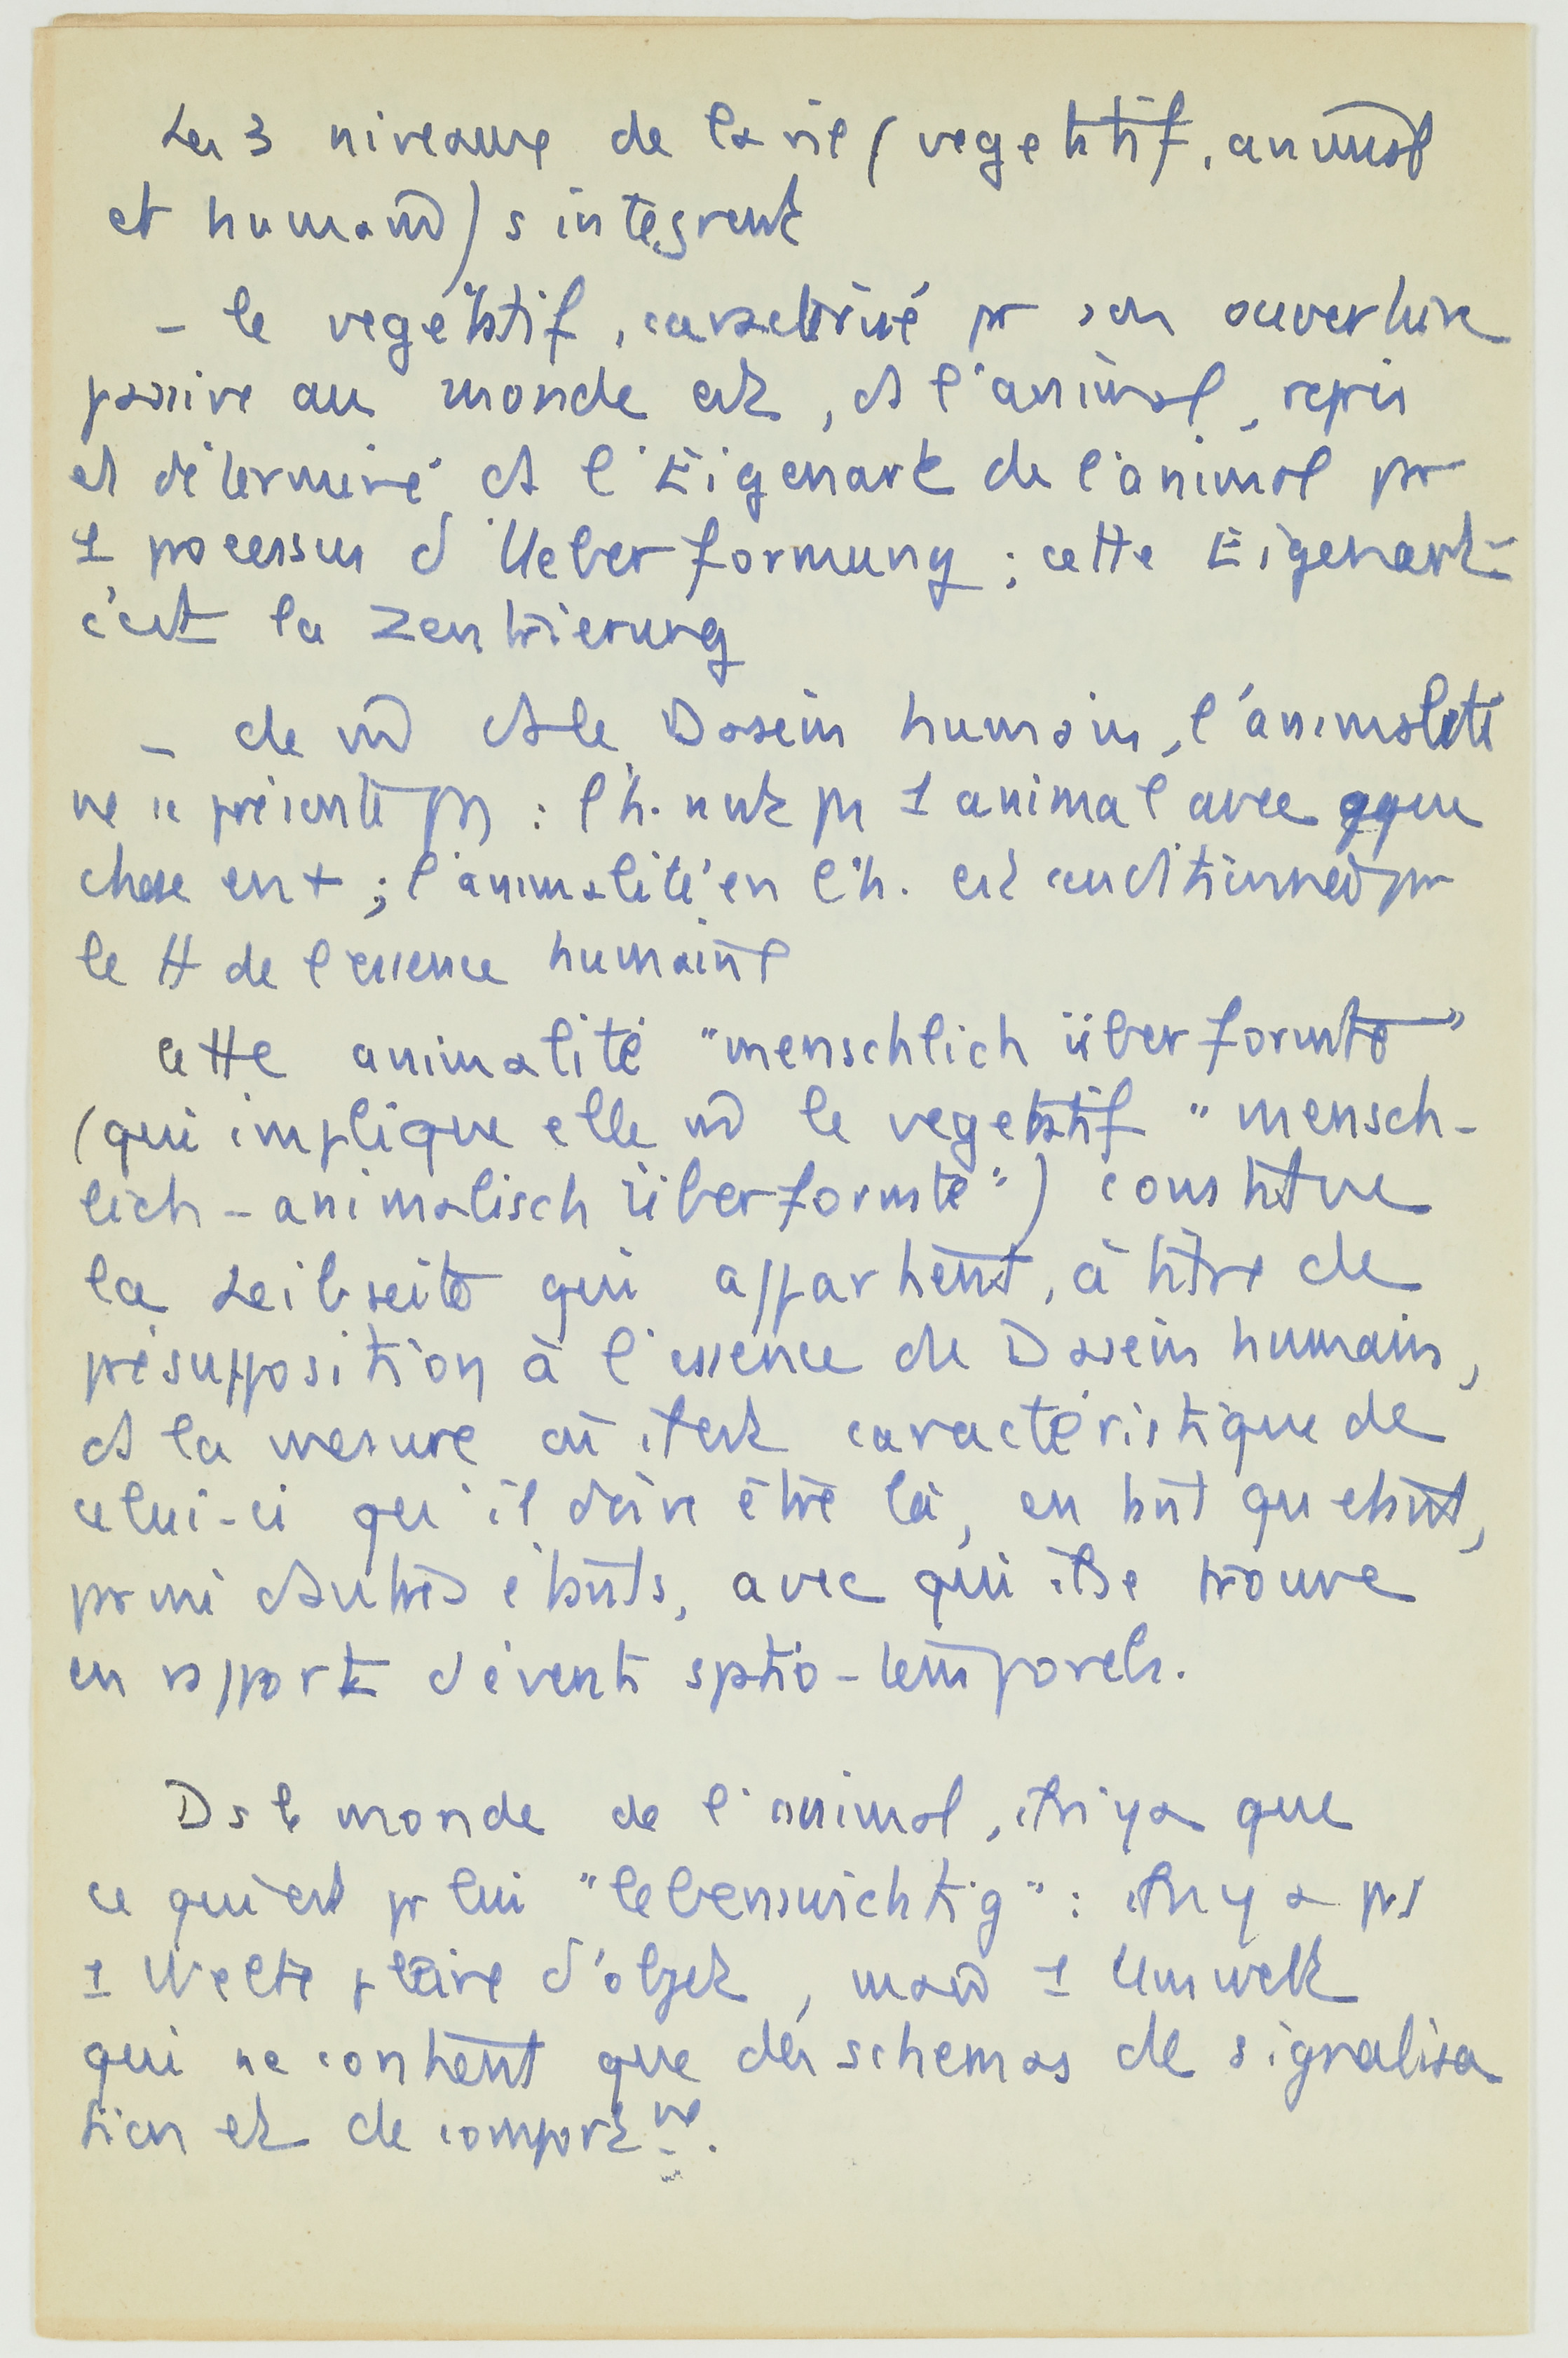 Les 3 niveaux de la vie (vegetatif, animal
et humain) s'intègrent
- le vegetatif, caractérisé pr son ouverture
passive au monde est, ds l'animal, repris
et déterminé ds l'Eigenart de l'animal pr
1 processus d'Ueberformung ; cette Eigenart
c'est la Zentrierung
- de m̂ ds le Dasein humain, l'animalité
ne se présente ps : l'h. n'est ps 1 animal avec qque
chose en + ; l'animalité en l'h. est conditionnée pr
le tt de l'essence humaine
cette animalité "menschlich überformte"
(qui implique elle m̂ le vegetatif "mensch-
lich-animalisch überformte") constitue
la Leibseite qui appartient, à titre de
présupposition à l'essence de Dasein humain,
ds la mesure où il est caractéristique de
celui-ci qu'il doive être là, en tant qu'étant,
parmi d'autres étants, avec qui il se trouve
en rapport d'évents spatio-temporels.
Ds le monde de l'animal, il n'y a que
ce qui est pr lui "lebenswichtig" : il n'y a pas
1 Welte pleine d'objet, mais 1 Umwelt
qui ne contient que des schemas de signalisa
tion et de comportmt.